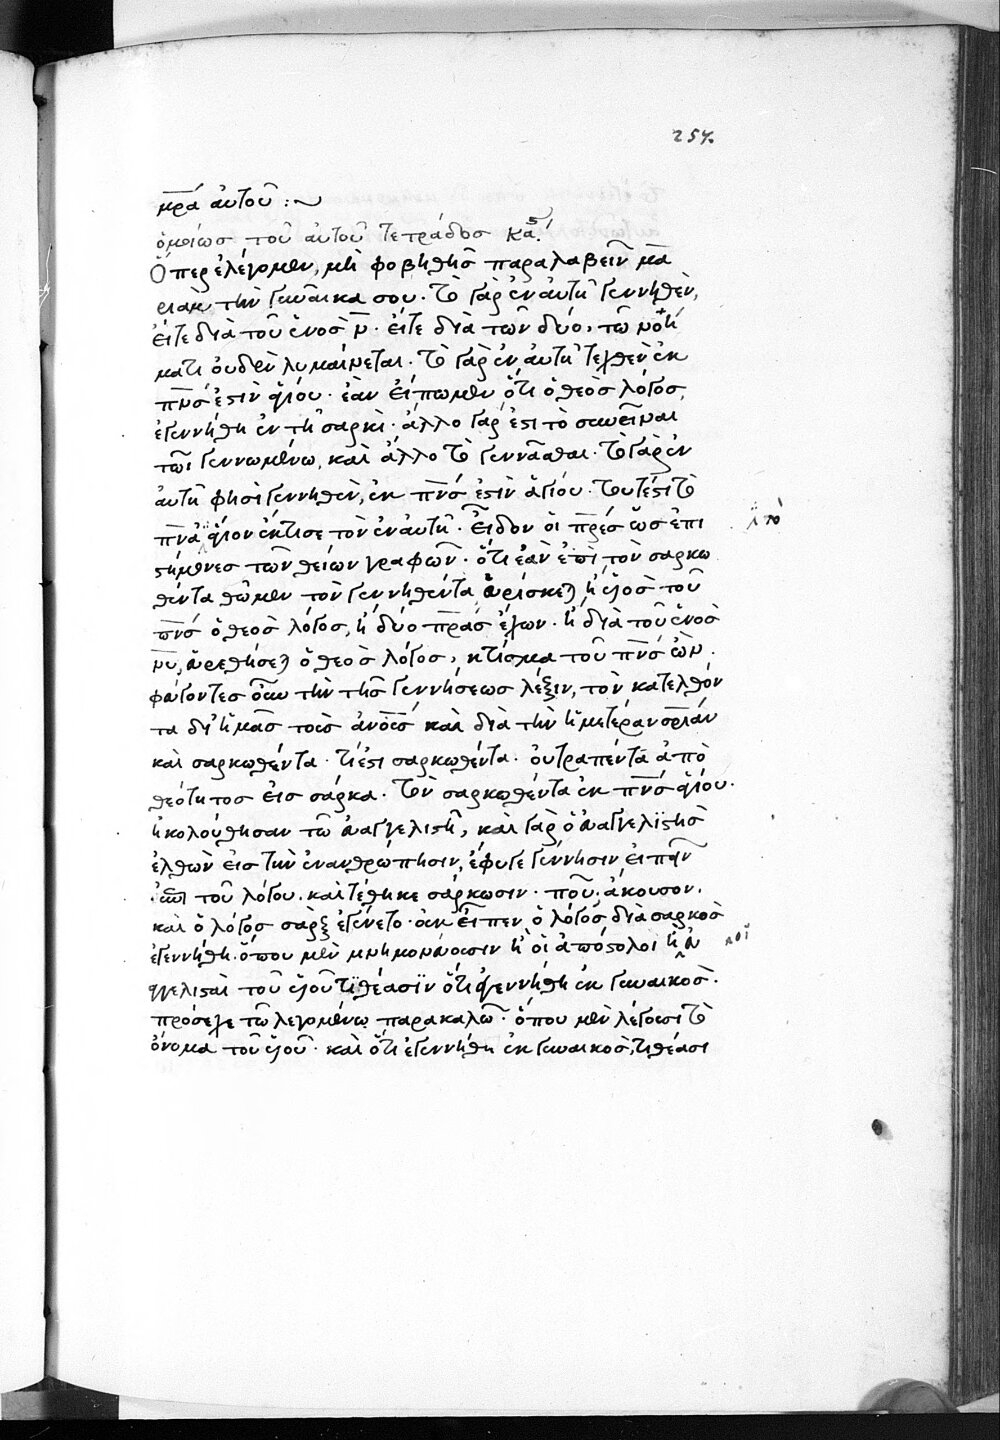 257.
μρ̅α ἀυτοῦ :~
ὁμοίως τοῦ ἀυτοῦ τετράδος κα^ς.
Ὅπερ ἐλέγομεν, μὴ φοβηθῆς παραλαβεῖν μα
ριὰμ τὴν γυναῖκα σου. τὸ γὰρ ἐν ἀυτῆ γεννηθὲν,
εἴτε διὰ τοῦ ἑνὸς ν̅. εἴτε διὰ τῶν δύο, τῶ νοή
ματι οὐδὲν λυμαίνεται. τὸ γὰρ ἐν ἀυτῆ τεχθὲν ἐκ
π̅ν̅ς ἐστὶν ἁγίου. ἐὰν εἴπωμεν ὅτι ὁ θεὸς λόγος,
ἐγεννήθη ἐν τῆ σαρκὶ. ἄλλο γάρ ἐστι τὸ συνεῖναι
τῶι γεννωμένω, καὶ ἄλλο τὸ γεννᾶσθαι. τὸ γὰρ ἐν
ἀυτῆ φησὶ γεννηθὲν, ἐκ π̅ν̅ς ἐστὶν ἁγίου. τουτέστι τὸ
π̅ν̅α ἅγιον ἔκτισε τὸν ἐν ἀυτῆ. εἶδον οἱ π̅ρ̅ες ὡς ἐπι
στήμονες τῶν θείων γραφῶν. ὅτι ἐὰν ἐπὶ τὸν σαρκω
θέντα θῶμεν τὸν γεννηθέντα, εὑρίσκεται ἢ υἱὸς τοῦ
π̅ν̅ς ὁ θεὸς λόγος, ἢ δύο π̅ρ̅ας ἔχων. ἢ διὰ τοῦ ἑνὸς
νυ, εὑρεθήσεται ὁ θεὸς λόγος, κτίσμα τοῦ π̅ν̅ς ὢν.
φεύγοντες οὖν τὴν τῆς γεννήσεως λέξιν, τὸν κατελθόν
τα δι' ἡμᾶς τοὺς ἀν̅ο̅υς καὶ διὰ τὴν ἡμετέραν σ̅ρ̅ίαν
καὶ σαρκωθέντα. τί ἐστι σαρκωθέντα. οὐ τραπέντα ἀπὸ
θεότητος εἰς σάρκα. τὸν σαρκωθέντα ἐκ π̅ν̅ς ἁγίου.
ἠκολούθησαν τῶ εὐαγγελιστῆ, καὶ γὰρ ὁ εὐαγγελιστὴς
ἐλθὼν εἰς τὴν ἐνανθρώπησιν, ἔφυγε γέννησιν εἰπεῖν
ἐπὶ τοῦ λόγου. καὶ τέθηκε σάρκωσιν. ποῦ; ἄκουσον.
καὶ ὁ λόγος σὰρξ ἐγένετο. οὐκ εἶπεν, ὁ λόγος διὰ σαρκὸς
ἐγεννήθη. ὅπου μὲν μνημονεύουσιν ἢ οἱ ἀπόστολοι ἢ εὐ
αγγελισταὶ τοῦ υἱοῦ τιθέασιν ὅτι ἐγεννήθη ἐκ γυναικὸς.
πρόσεχε τῶ λεγομένω παρακαλῶ. ὅπου μὲν λέγουσι τὸ
ὄνομα τοῦ υἱοῦ. καὶ ὅτι ἐγεννήθη ἐκ γυναικὸς, τιθέασι